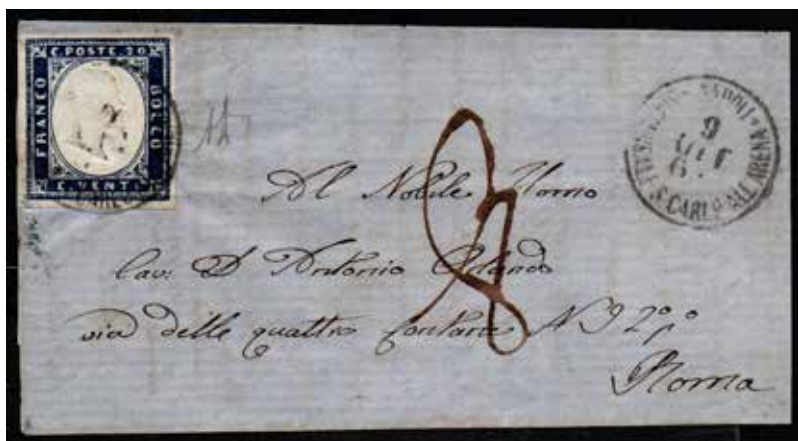 C. POSTE 20
FRANCO
BOLLO
C. VENTI
NAPOLI
9
S. CARLO ALL'ARENA
Al Nobile Uomo
Cav: D Antonio Orlando
via delle quattro fontane N 9 2º pº
Roma